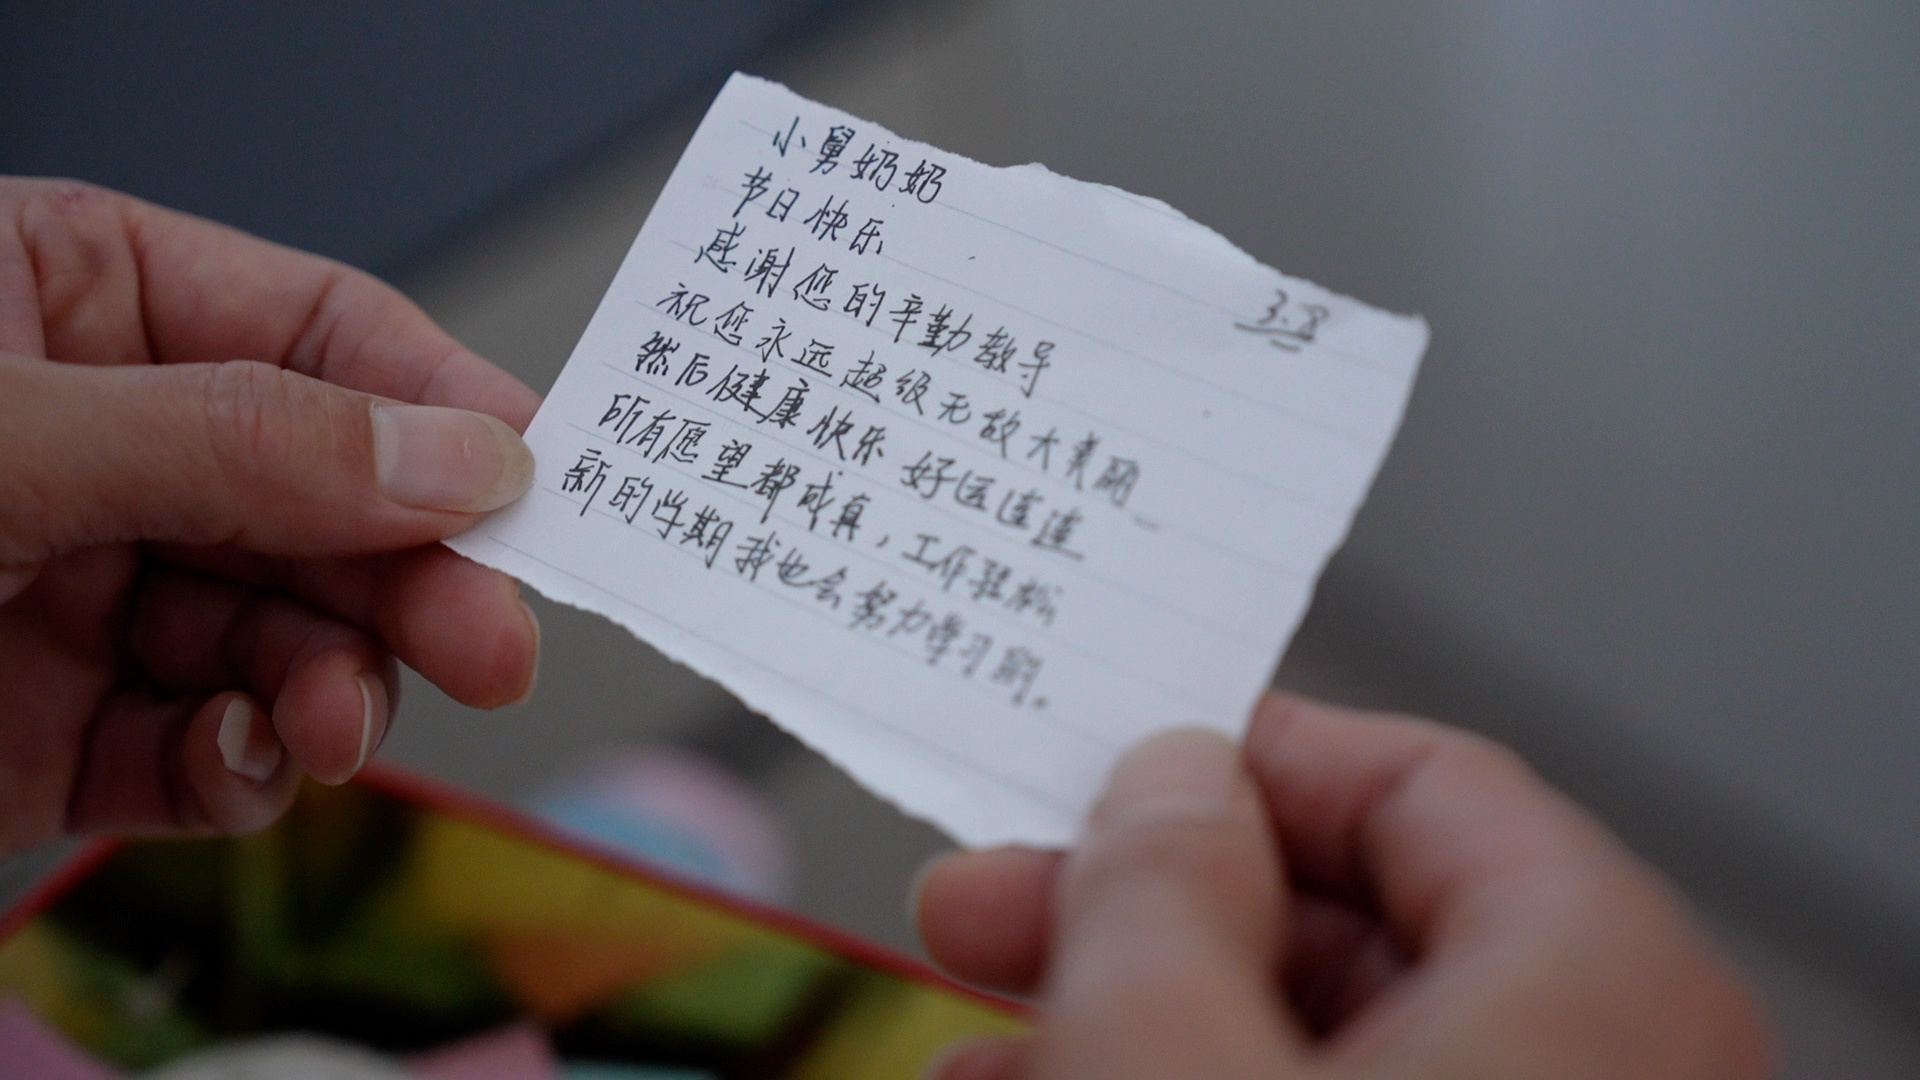 小舅奶奶
节日快乐
3.8
感谢您的辛勤教导
祝您永远超级无敌大美丽
然后健康快乐 好运连连
所有愿望都成真，工作轻松
新的学期我也会努力学习